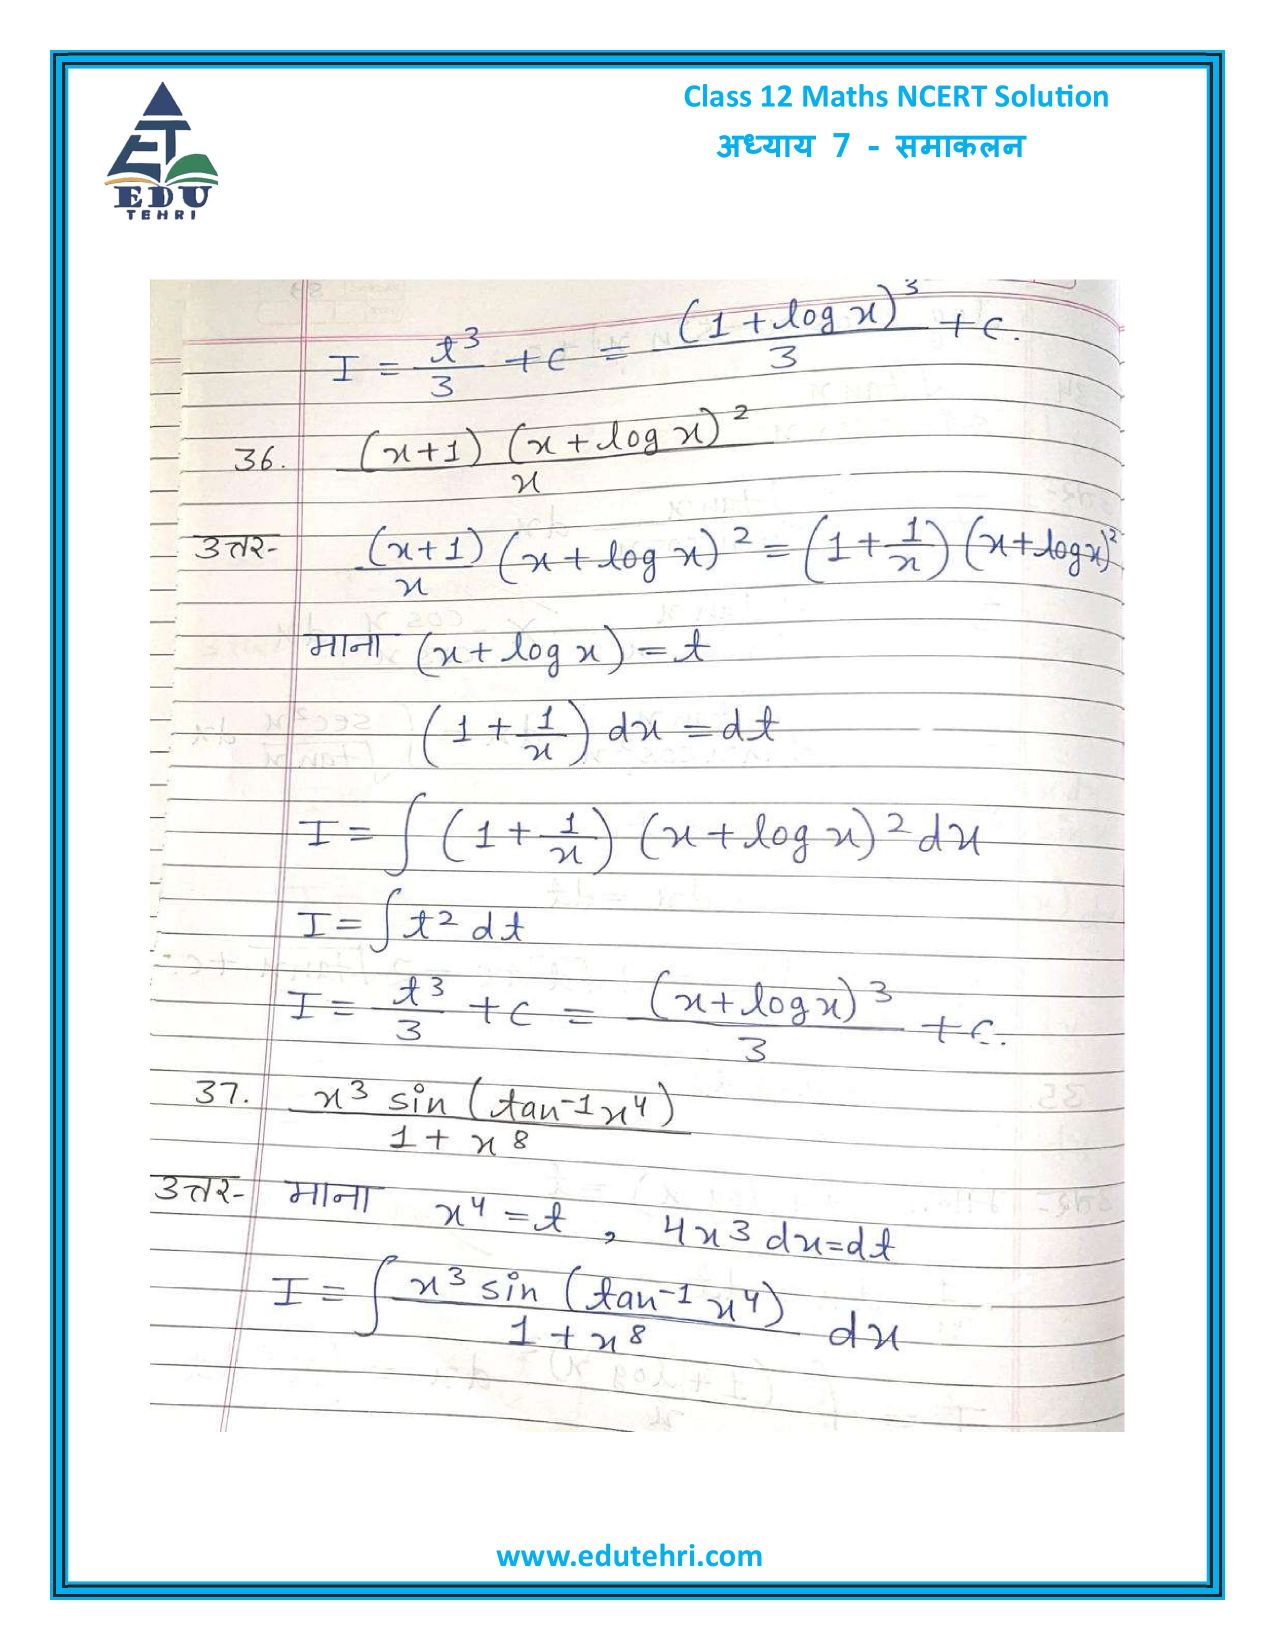 Class 12 Maths NCERT Solution
अध्याय 7 - समाकलन
EDU
TEHRI
I = t³/3 + c = (1 + log x)³/3 + c.
36. (x+1) (x + log x)²/x
उत्तर- (x+1)/x (x + log x)² = (1 + 1/x) (x + log x)²
माना (x + log x) = t
(1 + 1/x) dx = dt
I = ∫ (1 + 1/x) (x + log x)² dx
I = ∫ t² dt
I = t³/3 + c = (x + log x)³/3 + c.
37. x³ sin (tan⁻¹ x⁴)/1 + x⁸
उत्तर- माना x⁴ = t , 4x³ dx = dt
I = ∫ x³ sin (tan⁻¹ x⁴)/1 + x⁸ dx
www.edutehri.com